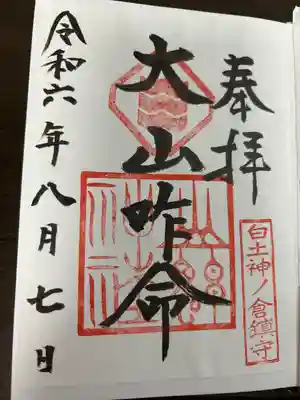 奉拝
大山咋命
白土神ノ倉鎮守
令和六年八月七日